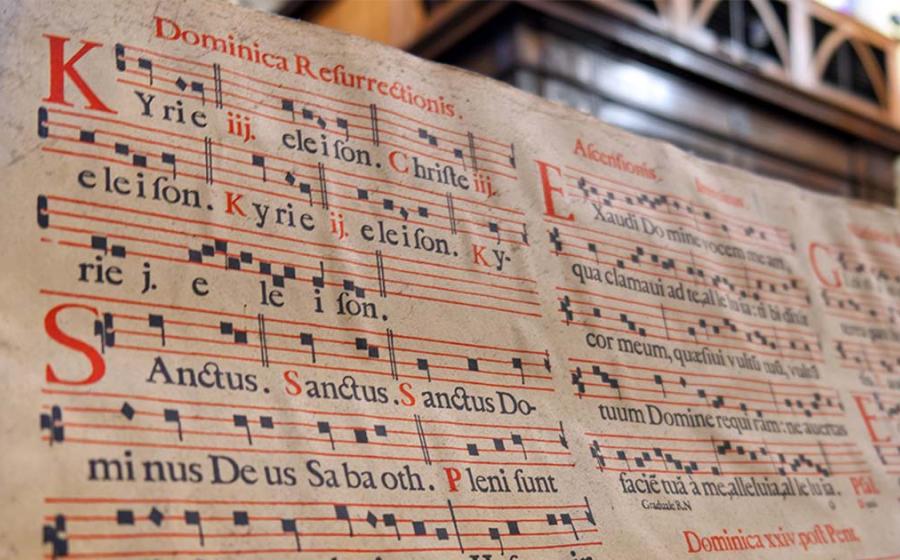 Dominica Resurrectionis.
KYrie iij. eleison. Christe iij.
eleison. Kyrie ij. eleison. Ky-
rie j. e le i son.
SAnctus. Sanctus. Sanctus Do-
minus Deus Sabaoth. Pleni sunt
Ascensionis.
EXaudi Domine vocem meam,
qua clamaui ad te, alleluia: tibi dixit
cor meum, quæsiui vultū tuū, vultū
tuum Domine requiram: ne auertas
faciē tuā à me, alleluia, alleluia. Psal.
Graduale R.N
Dominica xxiv. post Pent.